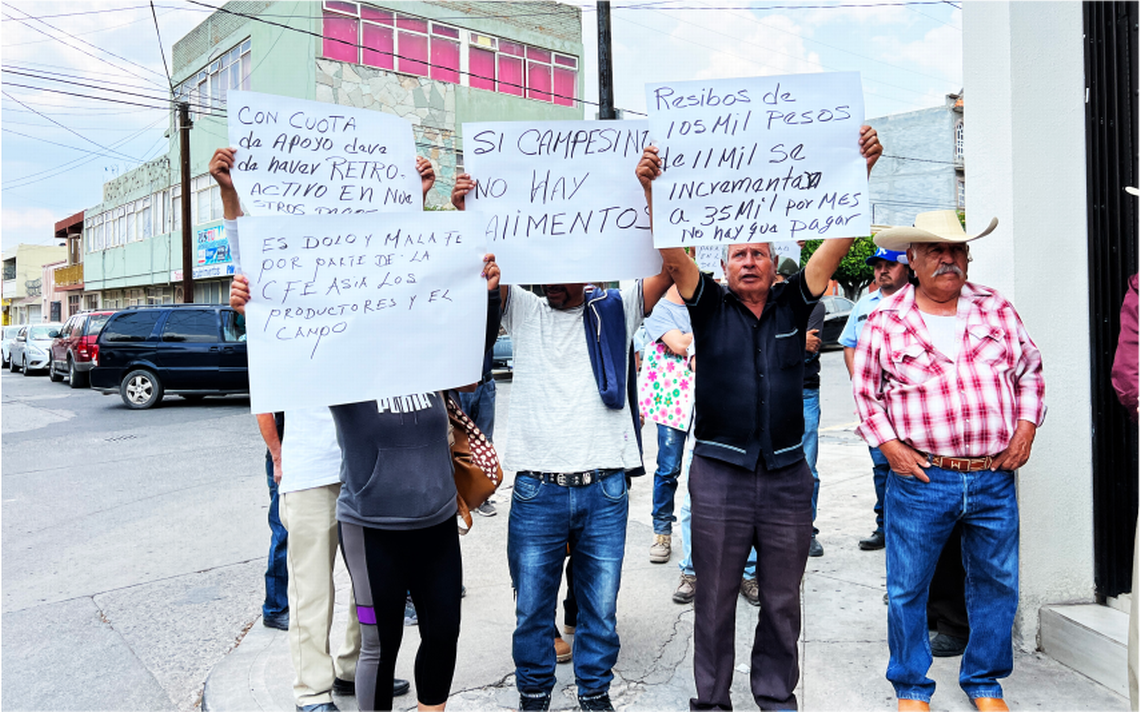 CON CUOTA
de APOYO deve
de haver RETRO-
ACTIVO EN NUE
STROS PAGOS
ES DOLO Y MALA FE
POR PARTE DE LA
CFE ASIA LOS
PRODUCTORES Y EL
CAMPO
SI CAMPESINO
NO HAY
AlIMENTOS
Resibos de
105 Mil Pesos
de 11 Mil Se
incrementa
a 35 Mil por MES
No hay que pagar
PUMA